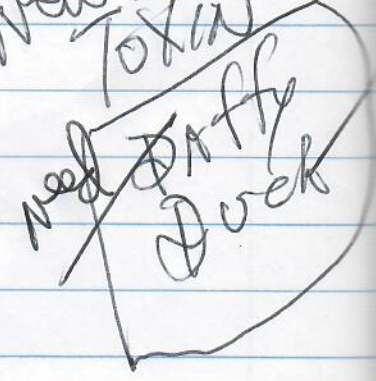 New
TOXIN
need Daffy
Duck